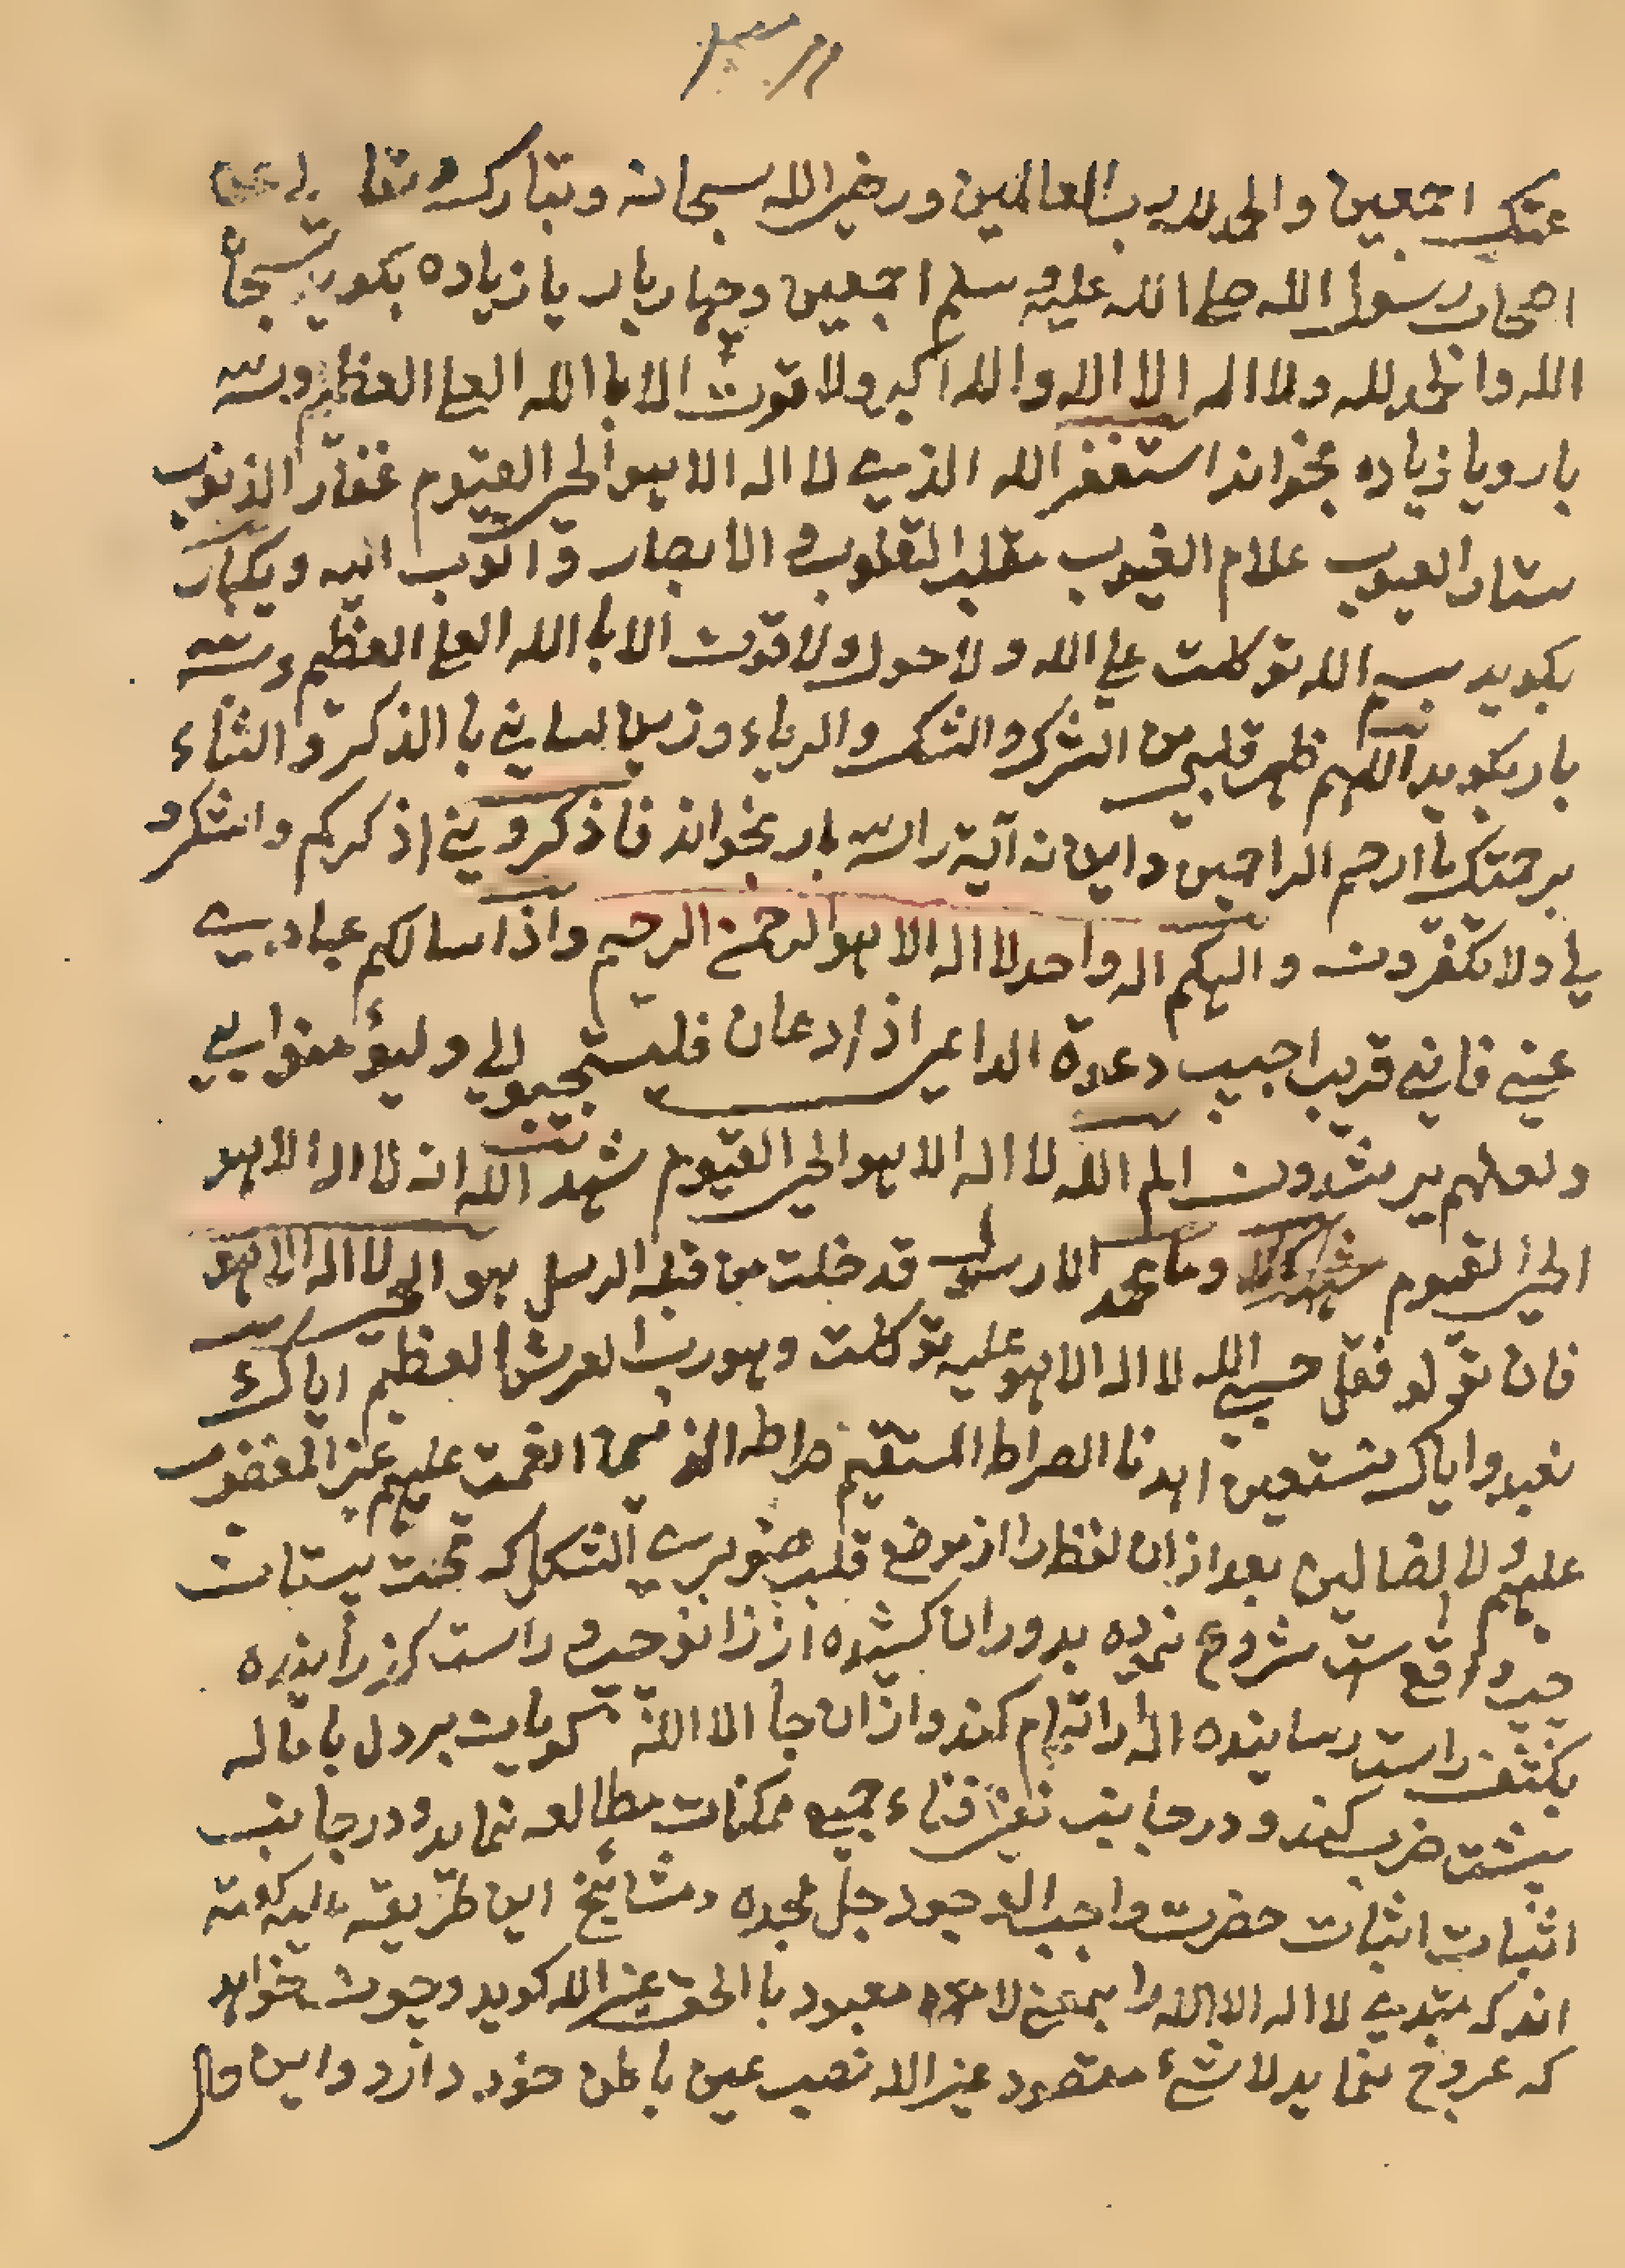 عنک اجمعین والحمد لله رب العالمین ورضی الله سبحانه وتبارک وتعالی عن
اصحاب رسول الله صلی الله علیه وسلم اجمعین وچهار بار یا زیاده بکوید سبحان
الله والحمد لله ولا اله الا الله والله اکبر ولا قوت الا باالله العلی العظیم وسه
بار ویا زیاده بخواند استغفر الله الذی لا اله الا هو الحی القیوم غفار الذنوب
ستار العیوب علام الغیوب مقلب القلوب والابصار واتوب الیه ویکبار
بکوید بسم الله توکلت علی الله ولا حول ولا قوت الا باالله العلی العظیم وسه
بار بکوید اللهم طهر قلبی من الشرک والشک والریاء وزین لسانی باالذکر والثناء
برحمتک یا ارحم الراحمین واین نه آیة را سه بار بخواند فاذکرونی اذکرکم واشکرو
لی ولا تکفرون والهکم اله واحد لا اله الا هو الرحمن الرحیم واذا سالکم عبادی
عنی فانی قریب اجیب دعوة الداعی اذا دعان فلیستجیبو لی ولیؤمنوا بی
ولعلهم یرشدون الم الله لا اله الا هو الحی القیوم شهد الله انه لا اله الا هو
الحی القیوم وما محمد الا رسول قد خلت من قبله الرسل هو الحی لا اله الا هو
فان تولو فقل حسبی الله لا اله الا هو علیه توکلت وهو رب العرش العظیم ایاک
نعبد وایاک نستعین اهدنا الصراط المستقیم صراط الذین انعمت علیهم غیر المغضوب
علیهم ولا الضالین بعد ازان لفظ را از موضع قلب صنوبری الشکل که تحت پستان
چپ واقع ست شروع نموده بدوران کشیده از زانو چپ و راست کذرانیده
بکتف راست رسانیده اله را تمام کند وازان جا الا الله کویان بر دل با ماله
پشت ضرب کند و در جانب نفی فناء جمیع ممکنات مطالعه نماید و در جانب
اثبات اثبات حضرت واجب الوجود جل مجده ومشائخ این طریقه عالیه کفته
اند که مبتدی لا اله الا الله را بمعنی لا معبود باالحق غیر الله کوید وچون خواهد
که عروج نماید لا شئ مقصود غیر الله نصب عین باطن خود دارد واین حال